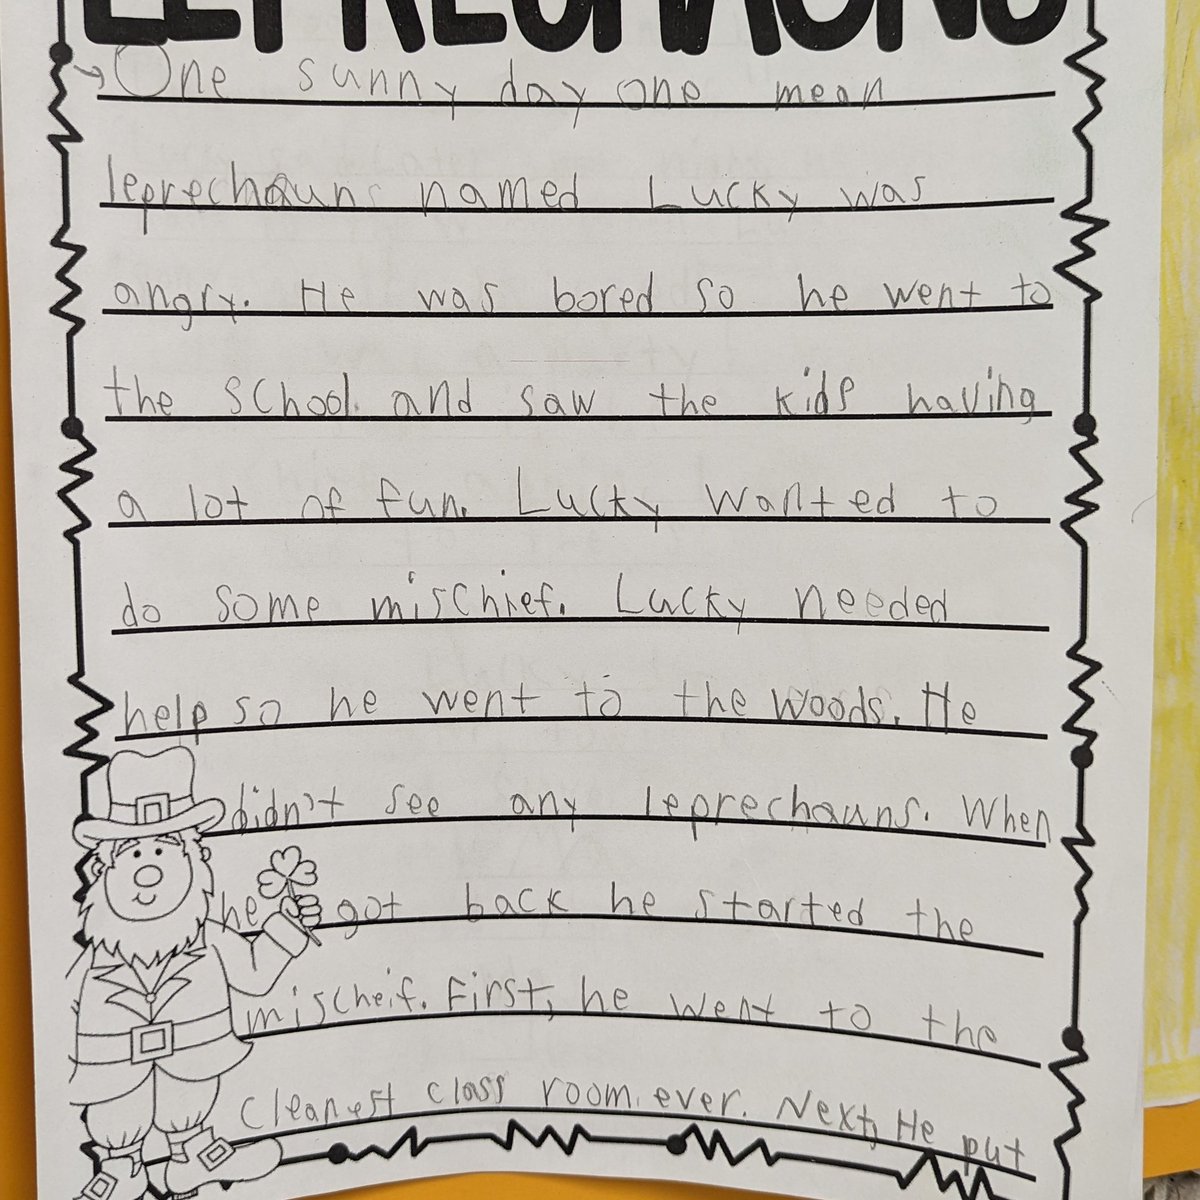 LEPRECHAUNS
One sunny day one mean
leprechaun named Lucky was
angry. He was bored so he went to
the school. and saw the kids having
a lot of fun. Lucky wanted to
do some mischief. Lucky needed
help so he went to the woods. He
didn't see any leprechauns. When
he got back he started the
mischeif. First, he went to the
cleanest class room. ever. Next, He put